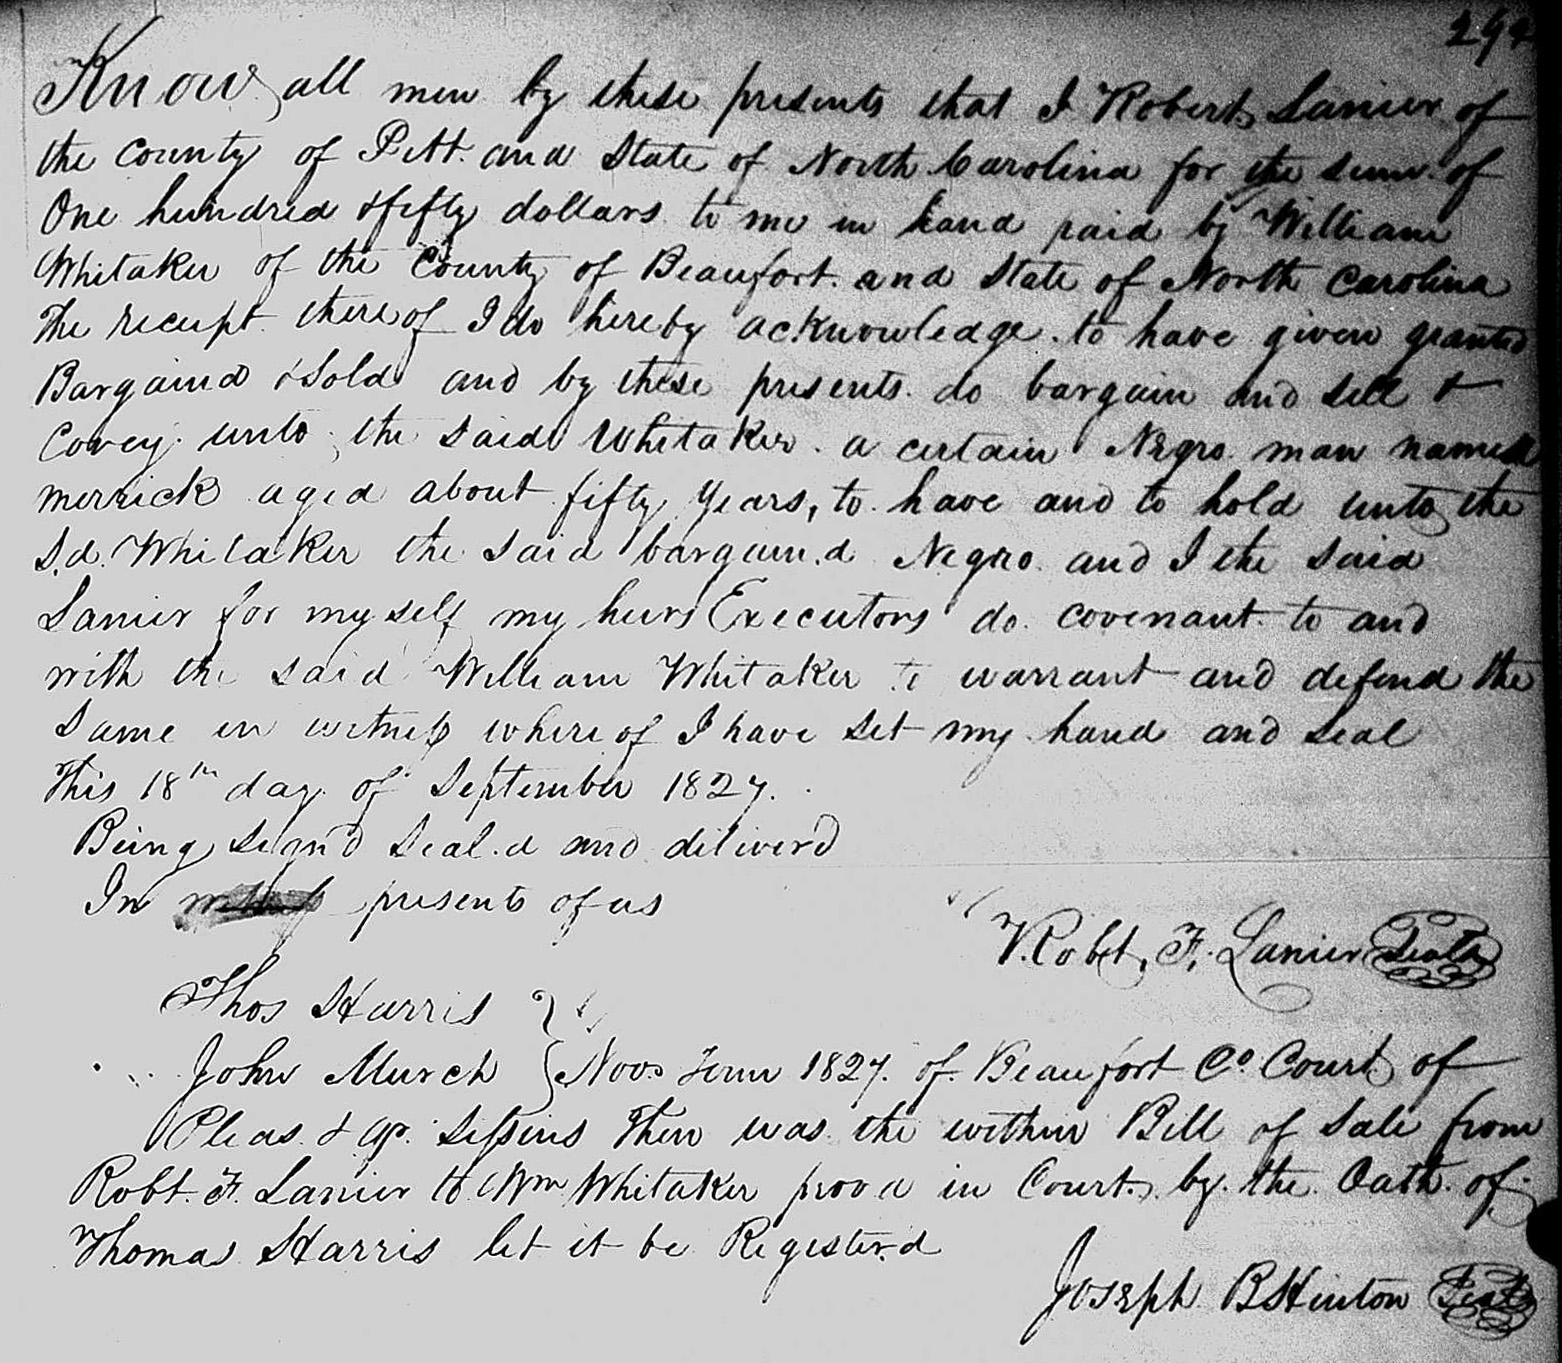 Know all men by these presents that I Robert Lanier of
the county of Pitt. and State of North Carolina for the sum of
One hundred & fifty dollars to me in hand paid by William
Whitaker of the County of Beaufort. and State of North Carolina
The receipt thereof I do hereby acknowledge. to have given granted
Bargaind & Sold and by these presents. do bargain and sell &
Covey unto the said Whitaker. a certain Negro man named
merrick aged about fifty years, to have and to hold unto the
S.d. Whitaker the said bargain.d Negro. and I the said
Lanier for my self my heirs Executors do. covenant. to and
with the said William Whitaker to warrant and defend the
Same in witness whereof I have set my hand and seal
This 18th day of September 1827.
Being sign'd Seal.d and deliver'd
In presents of us
Robt. F. Lanier Seal
Thos Harris }
John Murch } Nov. Term 1827. of Beaufort Co. Court of
Pleas. & qr. Sessins Then was the within Bill of Sale from
Robt. F. Lanier to Wm Whitaker prov d in Court. by. the Oath. of
Thomas Harris let it be Register.d
Joseph B Hinton Seal